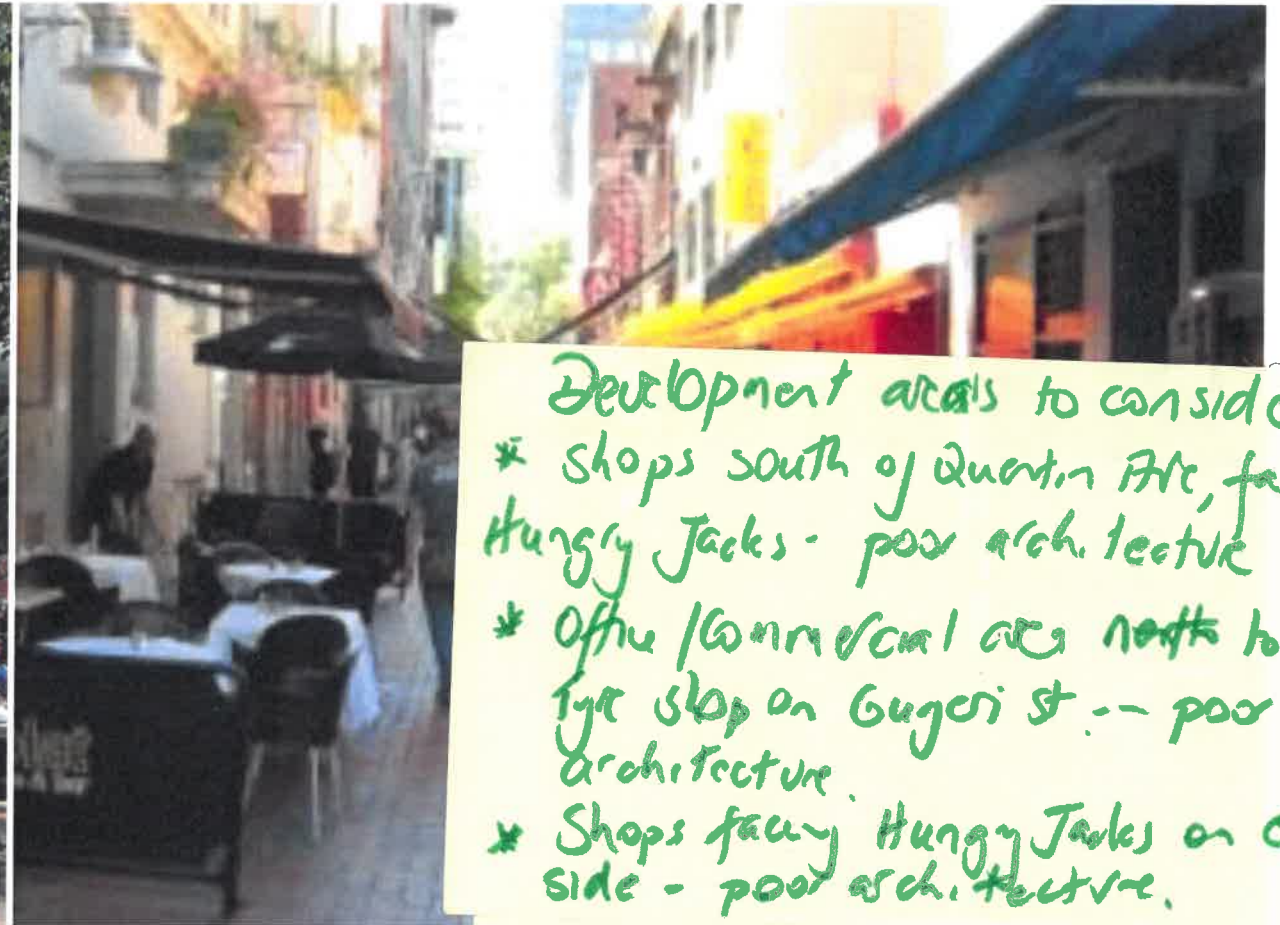 Development areas to consid
* Shops south of Quentin Ave, fa
Hungry Jacks - poor architecture
* Office / Commercial area north to
Tyre shop on Gugeri st. -- poor
architecture.
* Shops facing Hungry Jacks on
side - poor architecture.